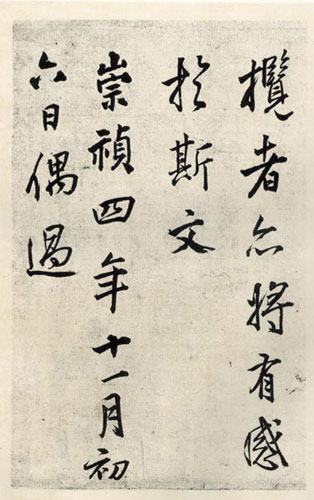 攬者亦將有感
於斯文
崇禎四年十一月初
六日偶過